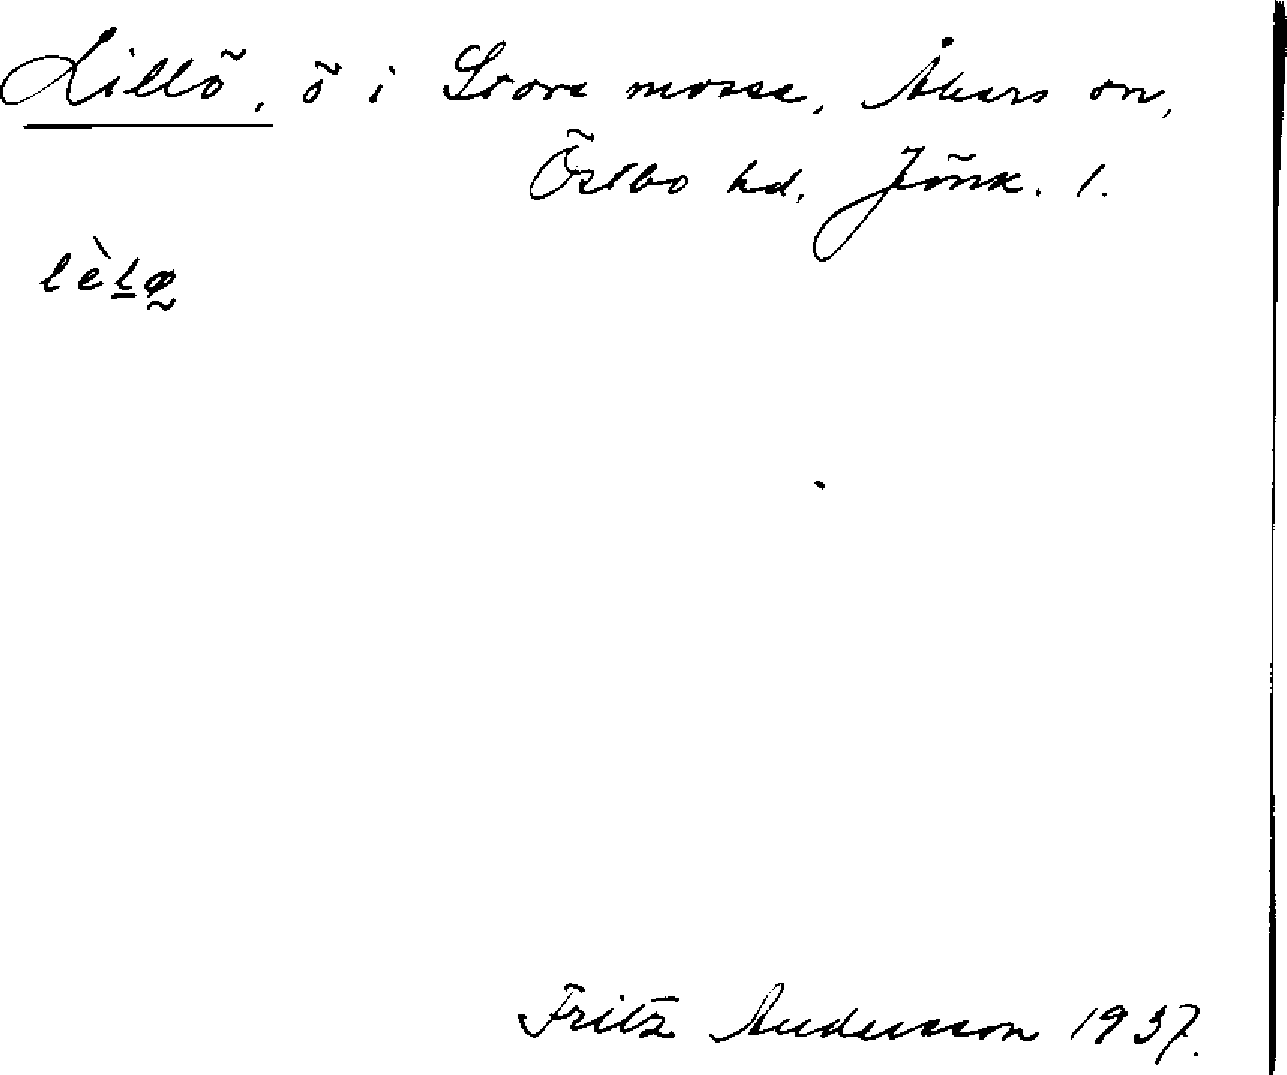 Lillö, ö i Store mosse, Åkers sn,
Östbo hd, Jönk. l.
lèlø
Fritz Andersson 1937.